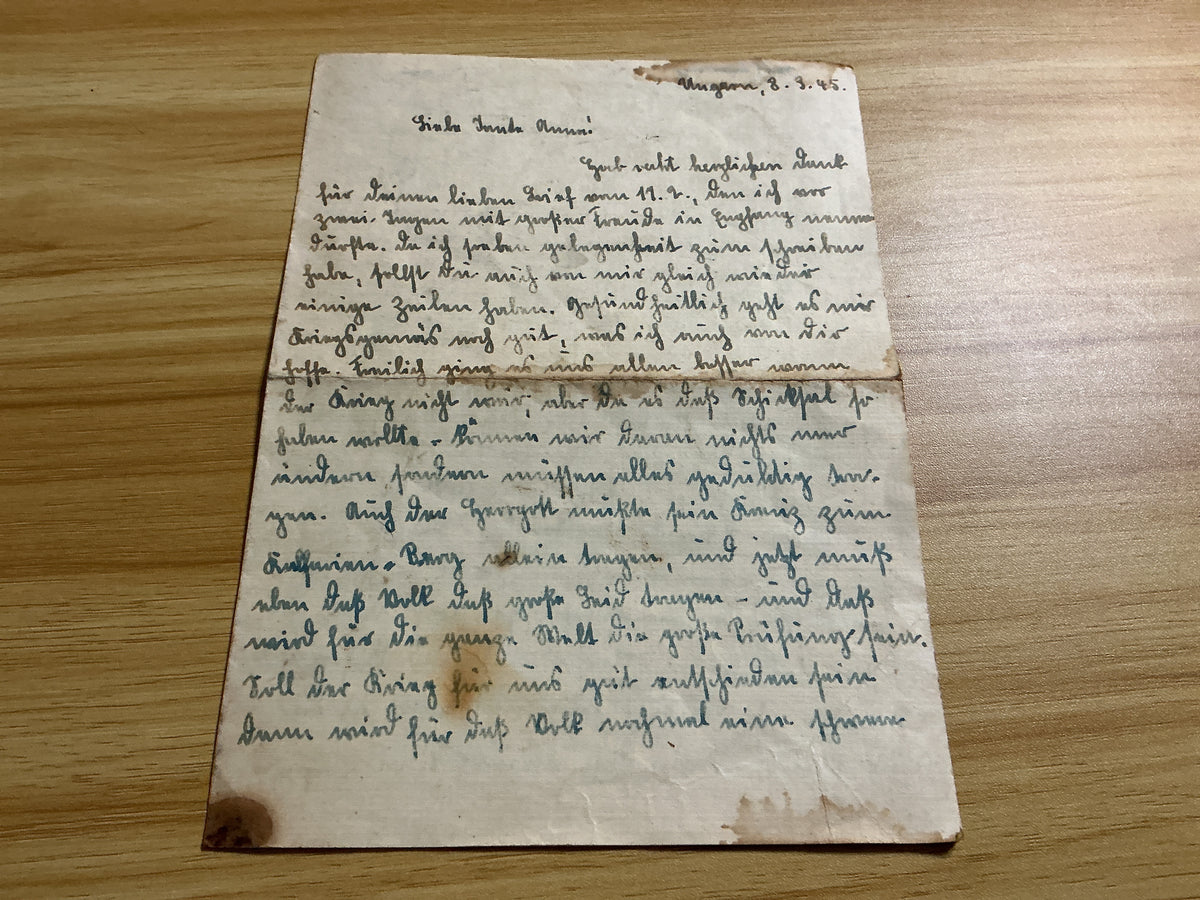 Ungarn, 8. 3. 45.
Liebe Tante Anna!
Hab recht herzlichen Dank
für deinen lieben Brief vom 17. 2., den ich vor
zwei Tagen mit großer Freude in Empfang nemen
durfte. Da ich soeben gelegenheit zum schreiben
habe, sollst Du auch von mir gleich wieder
einige Zeilen haben. Gesundheitlich geht es mir
Kriegsgemäs noch gut, was ich auch von dir
hoffe. Freilich ging es uns allen besser wenn
der Krieg nicht wär, aber da es daß Schicksal so
haben wollte - können wir daran nichts mer
ändern sondern müssen alles geduldig tra-
gen. Auch der Herrgott mußte sein Kreuz zum
Kalfarien-Berg allein tragen, und jetzt muß
eben daß Volk daß große Leid tragen - und daß
wird für die ganze Welt die große Prüfung sein.
Soll der Krieg für uns gut entschieden sein
dann wird für daß Volk nochmal eine schwere